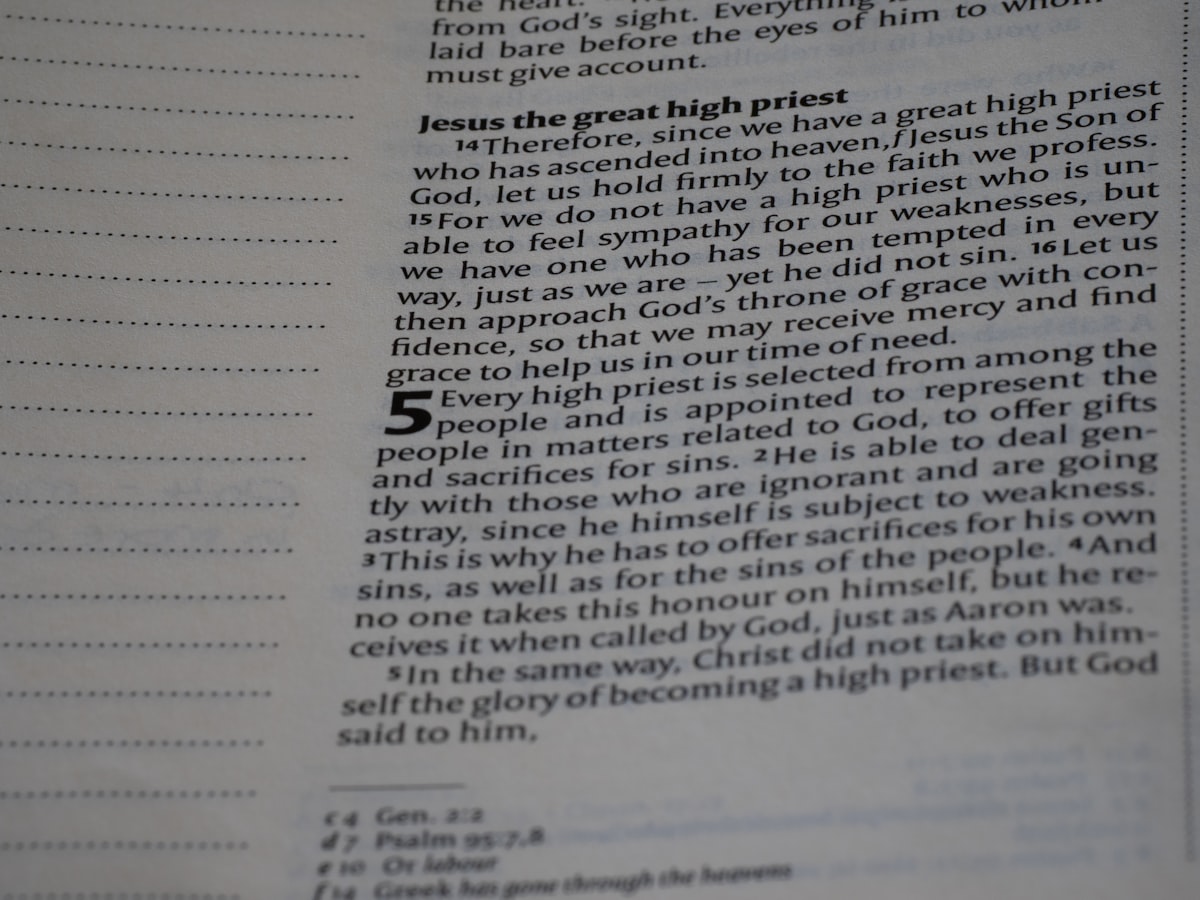 the heart.
from God's sight. Everything is
laid bare before the eyes of him to whom
must give account.
Jesus the great high priest
14 Therefore, since we have a great high priest
who has ascended into heaven,f Jesus the Son of
God, let us hold firmly to the faith we profess.
15 For we do not have a high priest who is un-
able to feel sympathy for our weaknesses, but
we have one who has been tempted in every
way, just as we are – yet he did not sin. 16 Let us
then approach God's throne of grace with con-
fidence, so that we may receive mercy and find
grace to help us in our time of need.
5 Every high priest is selected from among the
people and is appointed to represent the
people in matters related to God, to offer gifts
and sacrifices for sins. 2 He is able to deal gen-
tly with those who are ignorant and are going
astray, since he himself is subject to weakness.
3 This is why he has to offer sacrifices for his own
sins, as well as for the sins of the people. 4 And
no one takes this honour on himself, but he re-
ceives it when called by God, just as Aaron was.
5 In the same way, Christ did not take on him-
self the glory of becoming a high priest. But God
said to him,
c 4 Gen. 2:2
d 7 Psalm 95:7,8
e 10 Or labour
f 14 Greek has gone through the heavens